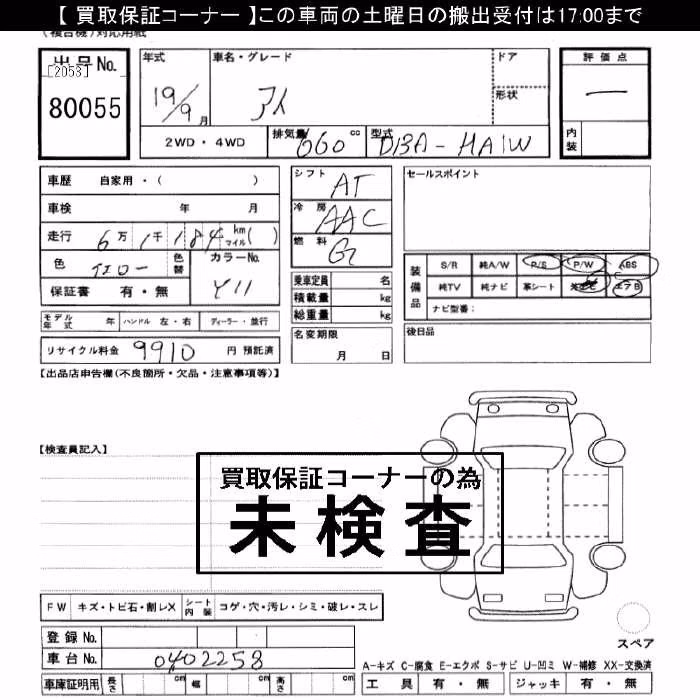 【 買取保証コーナー 】この車両の土曜日の搬出受付は17:00まで
(複合機)対応用紙
出品No. 年式 車名・グレード ドア 評価点
[2053]
80055 19/9月 アイ 形状 一
2WD・4WD 排気量 660 cc 型式 DBA-HA1W 内装
車歴 自家用・( ) シフト AT セールスポイント
車検 年 月 冷房 AAC
走行 6万1千184 km マイル( ) 燃料 G
色 イエロー 色替 カラーNo. Y11
保証書 有・無
装備品 S/R 純A/W P/S P/W ABS
純TV 純ナビ 革シート エアB
ナビ型番:
乗車定員 名
積載量 kg
総重量 kg
モデル年式 年 ハンドル 左・右 ディーラー・並行
名変期限 月 日 後日品
リサイクル料金 9910 円 預託済
【出品店申告欄(不良箇所・欠品・注意事項等)】
【検査員記入】
買取保証コーナーの為
未検査
FW キズ・トビ石・割レX シート内装 コゲ・穴・汚レ・シミ・破レ・スレ
スペア
登録No.
車台No. 0402258
A-キズ C-腐食 E-エクボ S-サビ U-凹ミ W-補修 XX-交換済
車庫証明用 長さ cm 幅 cm 高さ cm 工具 有・無 ジャッキ 有・無